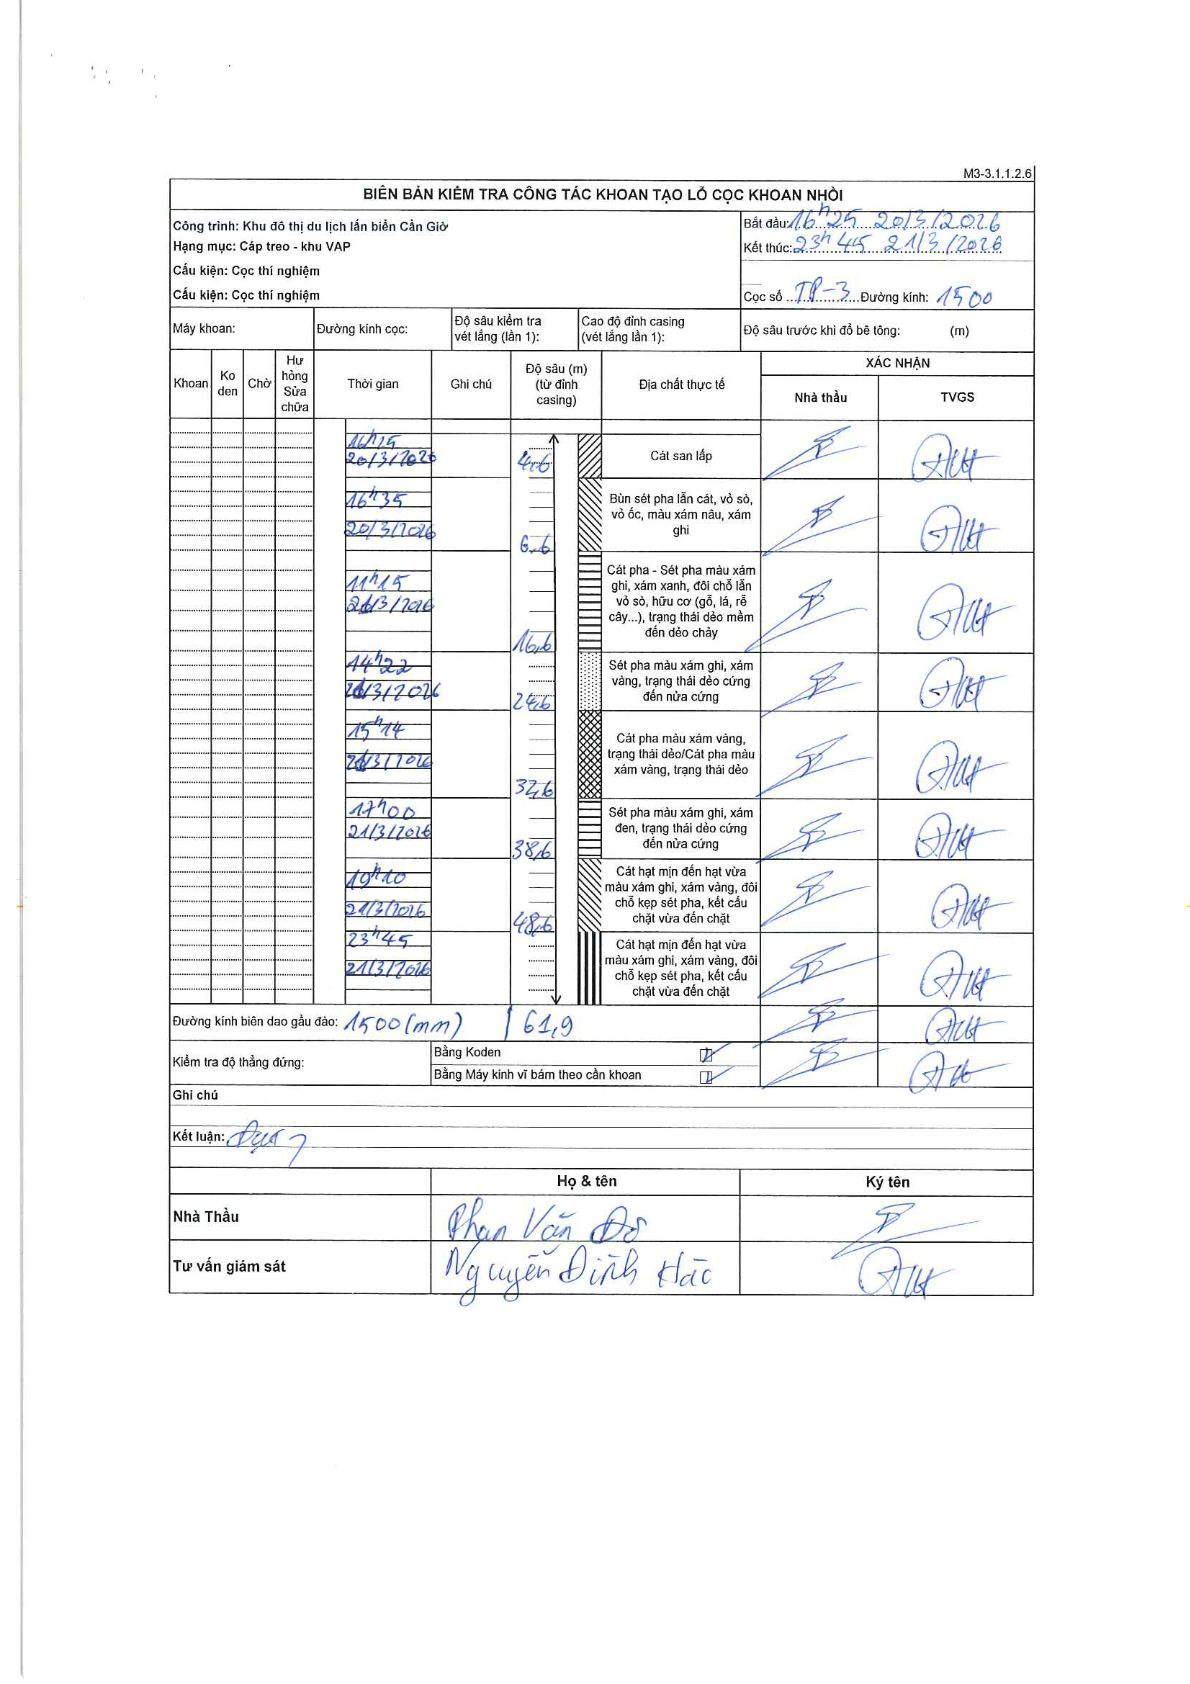 M3-3.1.1.2.6
BIÊN BẢN KIỂM TRA CÔNG TÁC KHOAN TẠO LỖ CỌC KHOAN NHỒI
Công trình: Khu đô thị du lịch lấn biển Cần Giờ
Hạng mục: Cáp treo - khu VAP
Cấu kiện: Cọc thí nghiệm
Cấu kiện: Cọc thí nghiệm
Bắt đầu: 16h25 20/3/2026
Kết thúc: 23h45 21/3/2026
Cọc số TP-3 Đường kính: 1500
Máy khoan:
Đường kính cọc:
Độ sâu kiểm tra
vét lắng (lần 1):
Cao độ đỉnh casing
(vét lắng lần 1):
Độ sâu trước khi đổ bê tông: (m)
Khoan
Ko
den
Chờ
Hư
hỏng
Sửa
chữa
Thời gian
Ghi chú
Độ sâu (m)
(từ đỉnh
casing)
Địa chất thực tế
XÁC NHẬN
Nhà thầu
TVGS
20/3/2026
4,6
Cát san lấp
16h35
20/3/2026
6,6
Bùn sét pha lẫn cát, vỏ sò,
vỏ ốc, màu xám nâu, xám
ghi
11h15
21/3/2026
16,6
Cát pha - Sét pha màu xám
ghi, xám xanh, đôi chỗ lẫn
vỏ sò, hữu cơ (gỗ, lá, rễ
cây...), trạng thái dẻo mềm
đến dẻo chảy
14h22
21/3/2026
24,6
Sét pha màu xám ghi, xám
vàng, trạng thái dẻo cứng
đến nửa cứng
15h14
21/3/2026
32,6
Cát pha màu xám vàng,
trạng thái dẻo/Cát pha màu
xám vàng, trạng thái dẻo
17h00
21/3/2026
38,6
Sét pha màu xám ghi, xám
đen, trạng thái dẻo cứng
đến nửa cứng
19h10
21/3/2026
48,6
Cát hạt mịn đến hạt vừa
màu xám ghi, xám vàng, đôi
chỗ kẹp sét pha, kết cấu
chặt vừa đến chặt
23h45
21/3/2026
Cát hạt mịn đến hạt vừa
màu xám ghi, xám vàng, đôi
chỗ kẹp sét pha, kết cấu
chặt vừa đến chặt
Đường kính biên dao gầu đào: 1500(mm) 61,9
Kiểm tra độ thẳng đứng:
Bằng Koden
Bằng Máy kinh vĩ bám theo cần khoan
Ghi chú
Kết luận: Đạt
Họ & tên
Ký tên
Nhà Thầu
Phan Văn Đô
Tư vấn giám sát
Nguyễn Đình Hắc